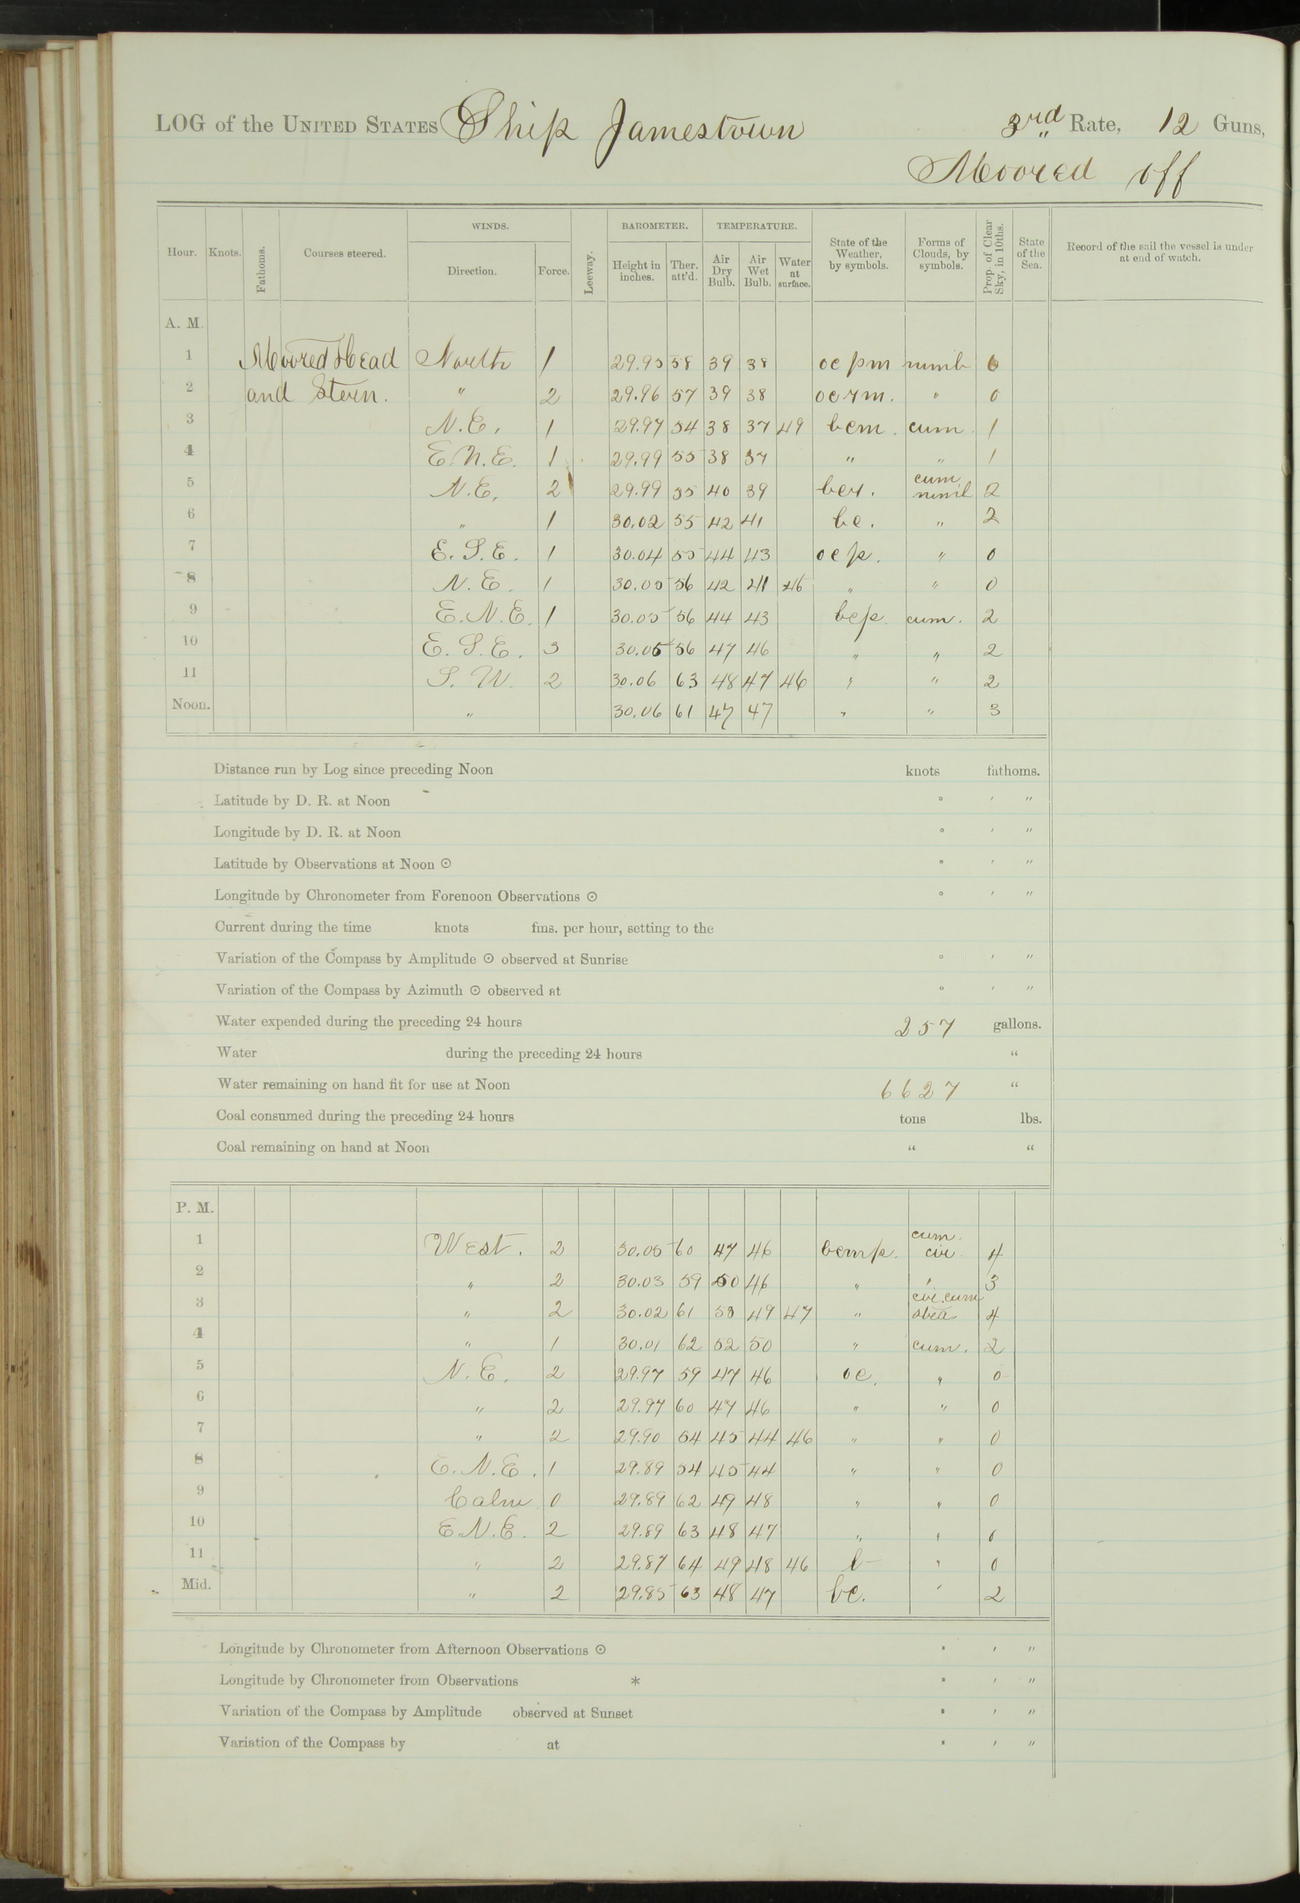 LOG of the UNITED STATES Ship Jamestown 3rd Rate, 12 Guns,
Moored off
Hour. Knots. Fathoms. Courses steered. WINDS. Direction. Force. Leeway. BAROMETER. Height in inches. Ther. att'd. TEMPERATURE. Air Dry Bulb. Air Wet Bulb. Water at surface. State of the Weather, by symbols. Forms of Clouds, by symbols. Prop. of Clear Sky, in 10ths. State of the Sea. Record of the sail the vessel is under at end of watch.
A. M.
1 Moored Head North 1 29.95 58 39 38 ocpm nimb 0
2 and Stern. " 2 29.96 57 39 38 ocrm. " 0
3 N.E. 1 29.97 54 38 37 49 bcm. cum. 1
4 E.N.E. 1 29.99 55 38 37 " " 1
5 N.E. 2 29.99 55 40 39 bcr. cum nimb 2
6 " 1 30.02 55 42 41 bc. " 2
7 E.S.E. 1 30.04 55 44 43 ocp. " 0
8 N.E. 1 30.05 56 42 41 46 " " 0
9 E.N.E. 1 30.05 56 44 43 bcp. cum. 2
10 E.S.E. 3 30.05 56 47 46 " " 2
11 S.W. 2 30.06 63 48 47 46 " " 2
Noon. " 30.06 61 47 47 " " 3
Distance run by Log since preceding Noon knots fathoms.
Latitude by D. R. at Noon ° ′ ″
Longitude by D. R. at Noon ° ′ ″
Latitude by Observations at Noon ☉ ° ′ ″
Longitude by Chronometer from Forenoon Observations ☉ ° ′ ″
Current during the time knots fms. per hour, setting to the
Variation of the Compass by Amplitude ☉ observed at Sunrise ° ′ ″
Variation of the Compass by Azimuth ☉ observed at ° ′ ″
Water expended during the preceding 24 hours 257 gallons.
Water during the preceding 24 hours "
Water remaining on hand fit for use at Noon 6627 "
Coal consumed during the preceding 24 hours tons lbs.
Coal remaining on hand at Noon " "
P. M.
1 West. 2 30.05 60 47 46 bcmp. cum. cir 4
2 " 2 30.03 59 50 46 " " 3
3 " 2 30.02 61 53 49 47 " cir.cum 4
4 " 1 30.01 62 52 50 " cum. 2
5 N.E. 2 29.97 59 47 46 oc. " 0
6 " 2 29.97 60 47 46 " " 0
7 " 2 29.90 54 45 44 46 " " 0
8 E.N.E. 1 29.89 54 45 44 " " 0
9 Calm 0 29.89 62 49 48 " " 0
10 E.N.E. 2 29.89 63 48 47 " " 0
11 " 2 29.87 64 49 48 46 b " 0
Mid. " 2 29.85 63 48 47 bc. " 2
Longitude by Chronometer from Afternoon Observations ☉ ° ′ ″
Longitude by Chronometer from Observations * ° ′ ″
Variation of the Compass by Amplitude observed at Sunset ° ′ ″
Variation of the Compass by at ° ′ ″